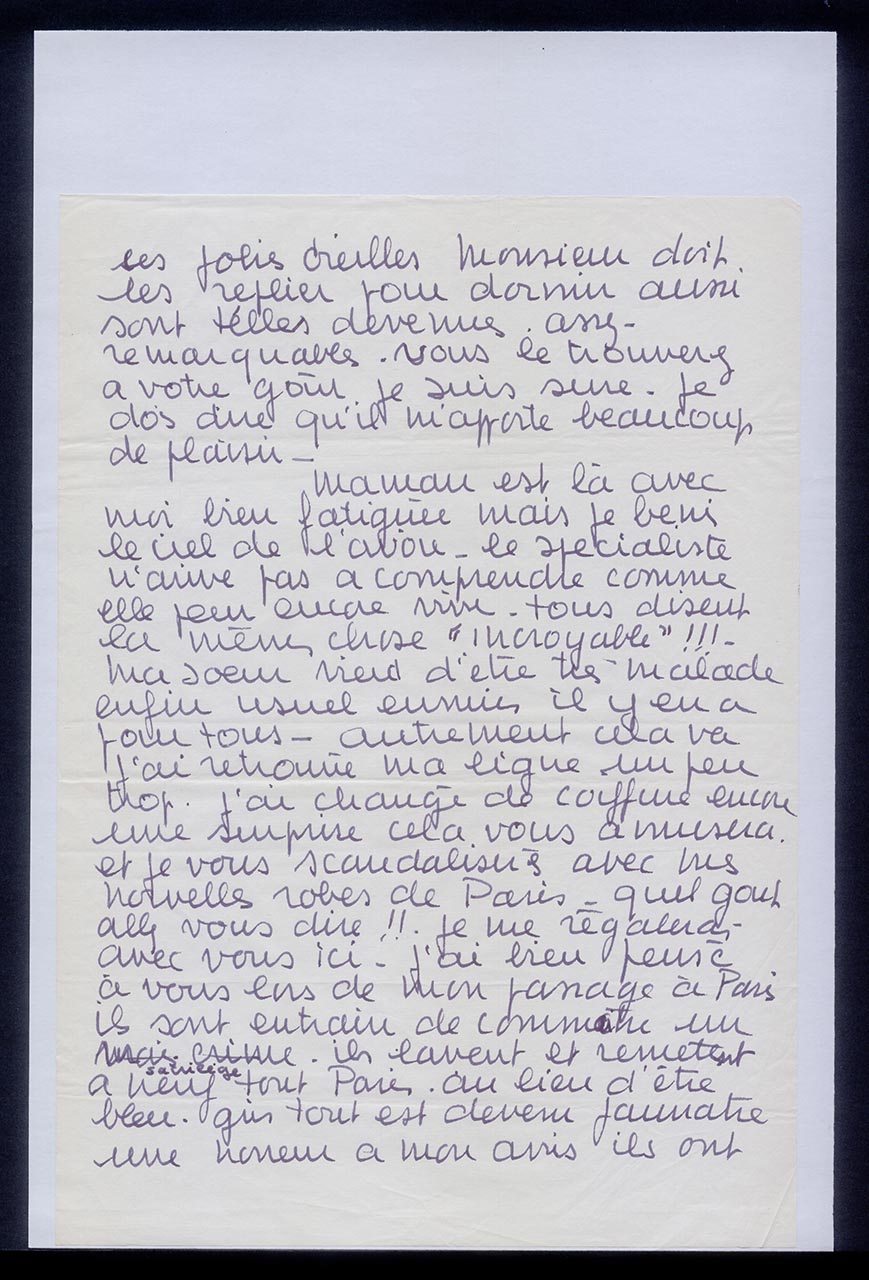 ses jolies oreilles Monsieur doit
les replier pour dormir aussi
sont telles devenues assez
remarquables. vous le trouverez
a votre goût je suis sure. je
dois dire qu'il m'apporte beaucoup
de plaisir –
Maman est là avec
moi bien fatiguée mais je beni
le ciel de l'avoir – le specialiste
n'arrive pas a comprendre comme
elle peu encre vivre. tous disent
la même chose "incroyable" !!! –
Ma soeur vient d'etre très malade
enfin usuel ennuie il y en a
pour tous – autrement cela va
j'ai retrouvé ma ligne un peu
trop. j'ai changé de coiffure encore
une surprise cela vous amusera.
et je vous scandaliserai avec mes
nouvelles robes de Paris – quel gout
allez vous dire !!. je me régalerai
avec vous ici – j'ai bien pensé
à vous lors de mon passage à Paris
ils sont entrain de commettre un
sacrilège
crime. ils lavent et remettent
a neuf tout Paris. au lieu d'être
bleu. gris tout est devenu jaunatre
une horreur a mon avis ils ont